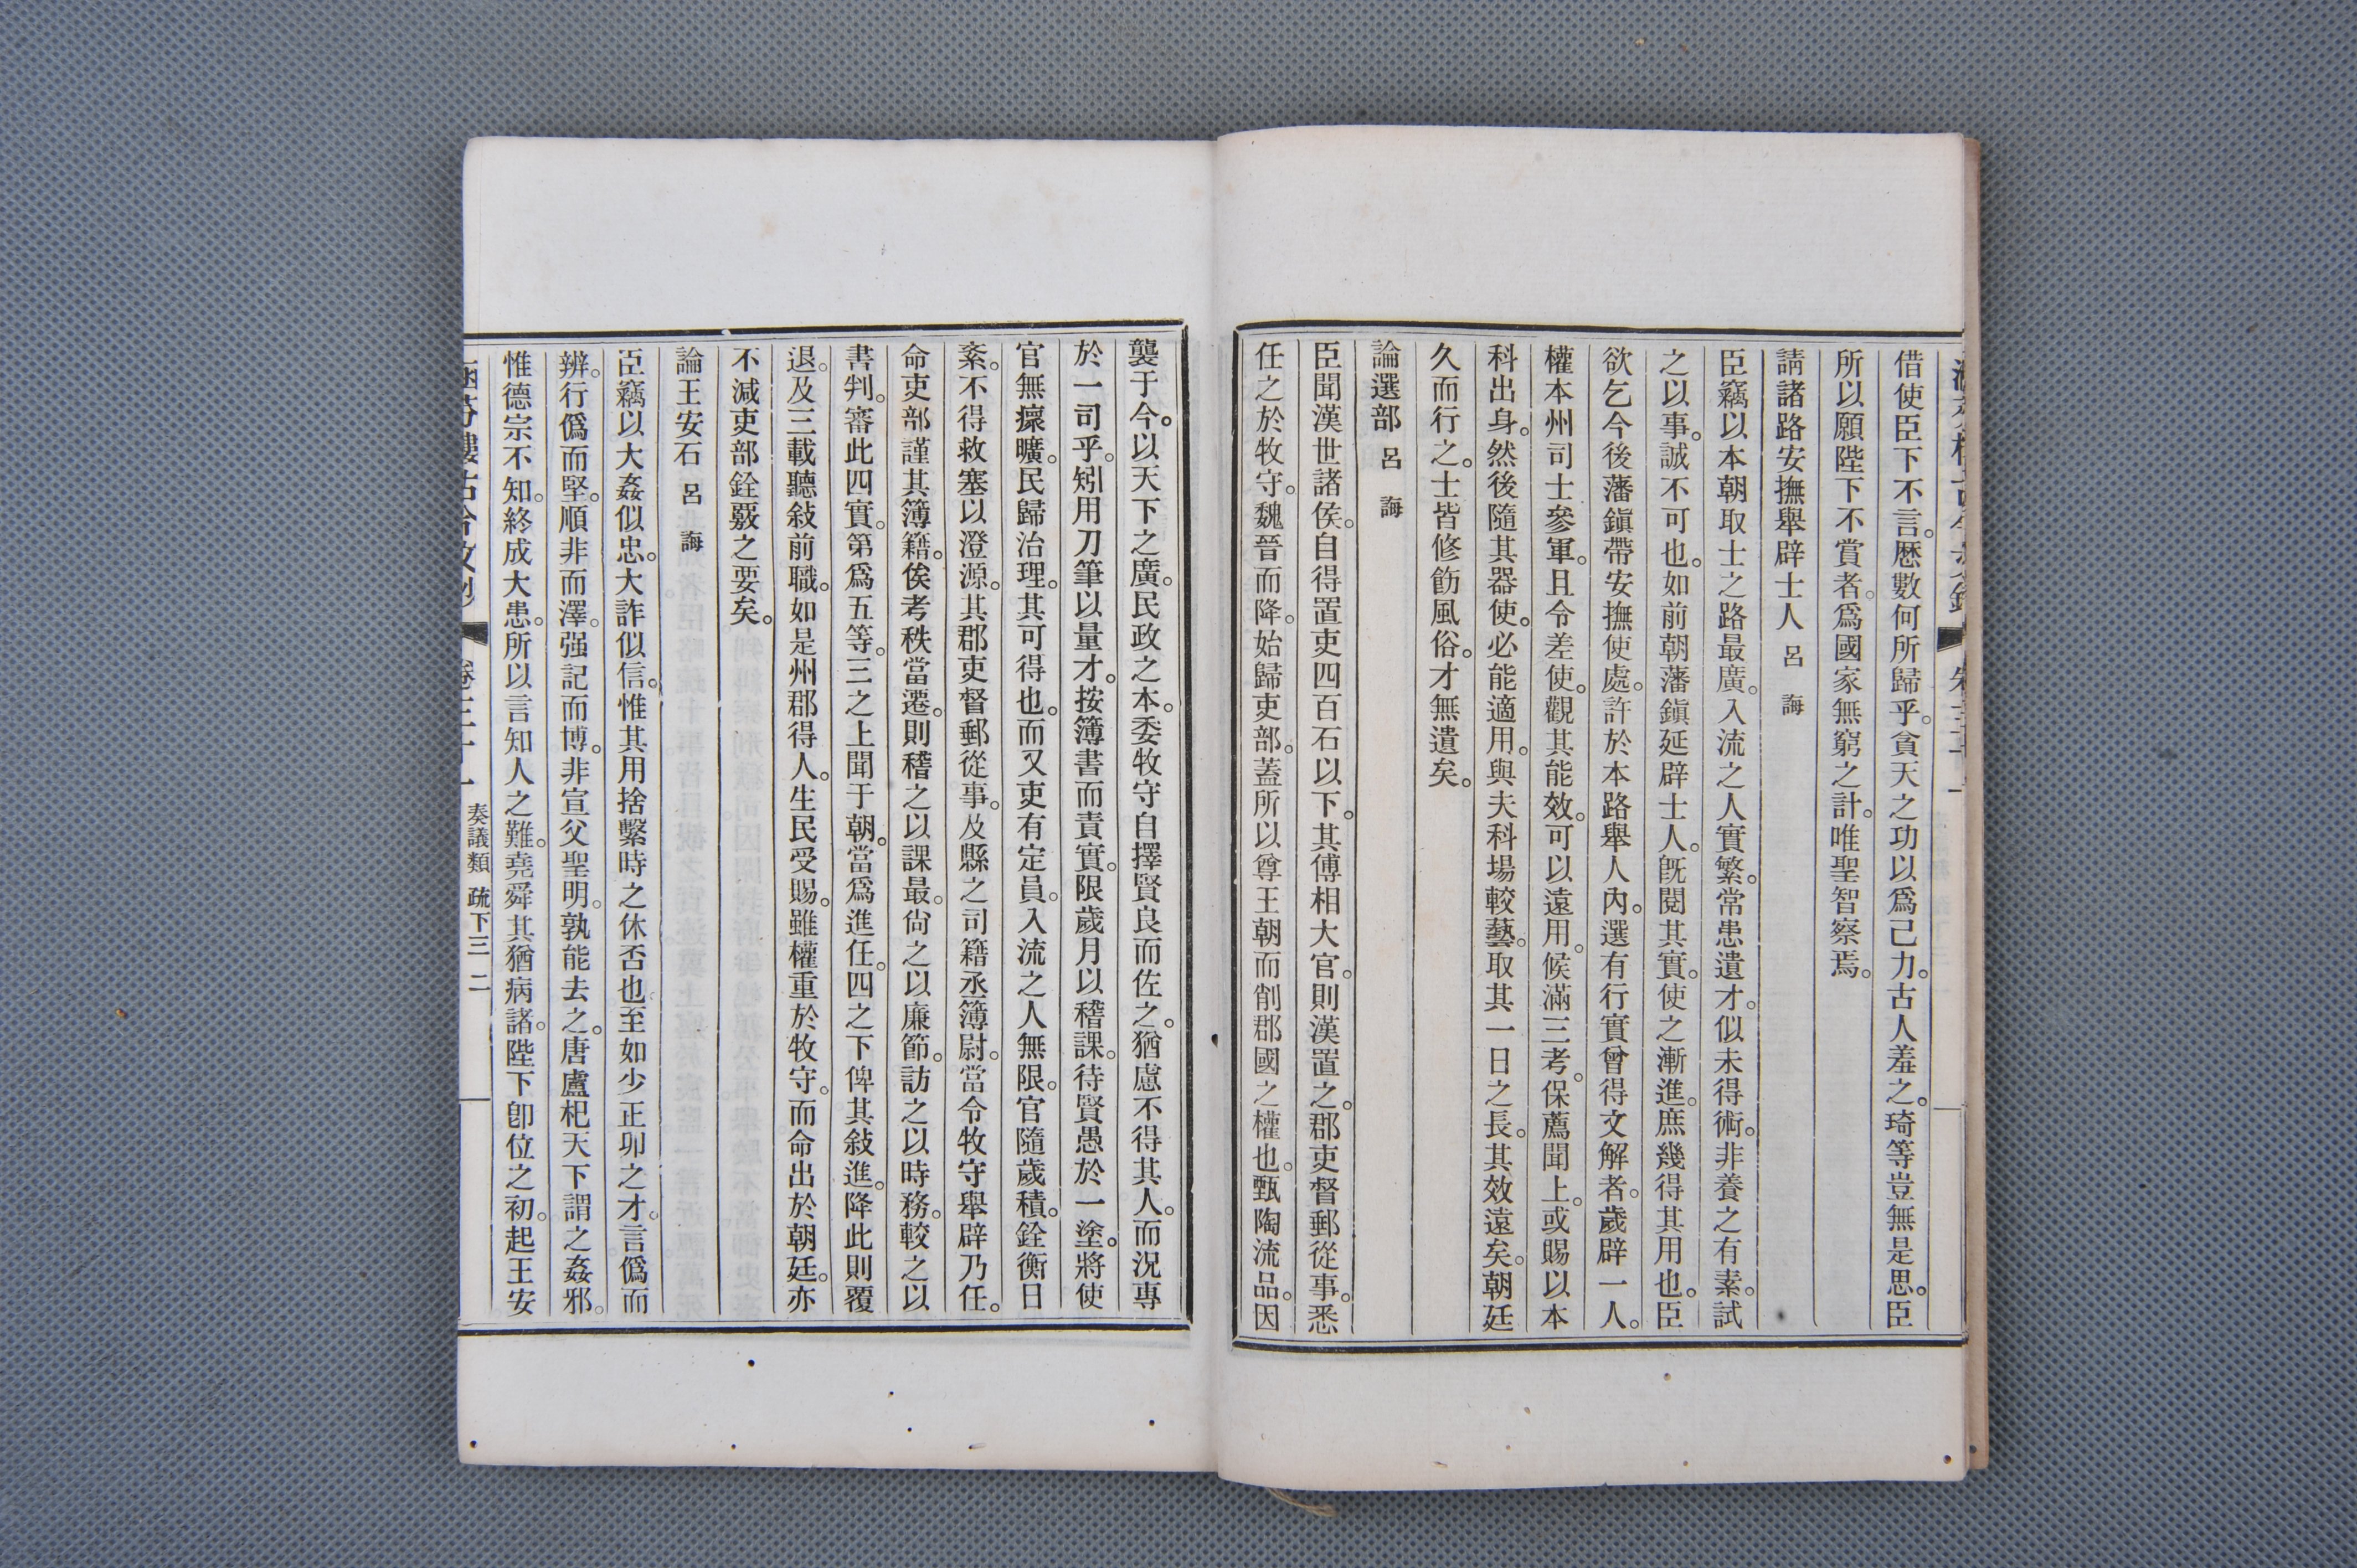 借使臣下不言。厯數何所歸乎。貪天之功以爲己力。古人羞之。琦等豈無是思。臣
所以願陛下不賞者。爲國家無窮之計。唯聖智察焉。
請諸路安撫舉辟士人 呂 誨
臣竊以本朝取士之路最廣。入流之人實繁。常患遺才。似未得術。非養之有素。試
之以事。誠不可也。如前朝藩鎭延辟士人。旣閱其實。使之漸進。庶幾得其用也。臣
欲乞今後藩鎭帶安撫使處。許於本路舉人內。選有行實曾得文解者。歲辟一人。
權本州司士參軍。且令差使。觀其能效。可以遠用。候滿三考。保薦聞上。或賜以本
科出身。然後隨其器使。必能適用。與夫科場較藝。取其一日之長。其效遠矣。朝廷
久而行之。士皆修飭風俗。才無遺矣。
論選部 呂 誨
臣聞漢世諸侯。自得置吏四百石以下。其傅相大官。則漢置之。郡吏督郵從事。悉
任之於牧守。魏晉而降。始歸吏部。蓋所以尊王朝而削郡國之權也。甄陶流品。因
襲于今。以天下之廣。民政之本。委牧守自擇賢良而佐之。猶慮不得其人。而況專
於一司乎。矧用刀筆以量才。按簿書而責實。限歲月以稽課。待賢愚於一塗。將使
官無瘝曠。民歸治理。其可得也。而又吏有定員。入流之人無限。官隨歲積。銓衡日
紊。不得救塞以澄源。其郡吏督郵從事。及縣之司籍丞簿尉。當令牧守舉辟乃任。
命吏部謹其簿籍。俟考秩當遷。則稽之以課最。尙之以廉節。訪之以時務。較之以
書判。審此四實。第爲五等。三之上聞于朝。當爲進任。四之下俾其敍進。降此則覆
退。及三載聽敍前職。如是州郡得人。生民受賜。雖權重於牧守。而命出於朝廷。亦
不減吏部銓覈之要矣。
論王安石 呂 誨
臣竊以大姦似忠。大詐似信。惟其用捨繫時之休否也。至如少正卯之才。言僞而
辨。行僞而堅。順非而澤。强記而博。非宣父聖明。孰能去之。唐盧杞天下謂之姦邪。
惟德宗不知。終成大患。所以言知人之難。堯舜其猶病諸。陛下卽位之初。起王安
涵芬樓古今文鈔 卷三十一 奏議類 疏下三 二